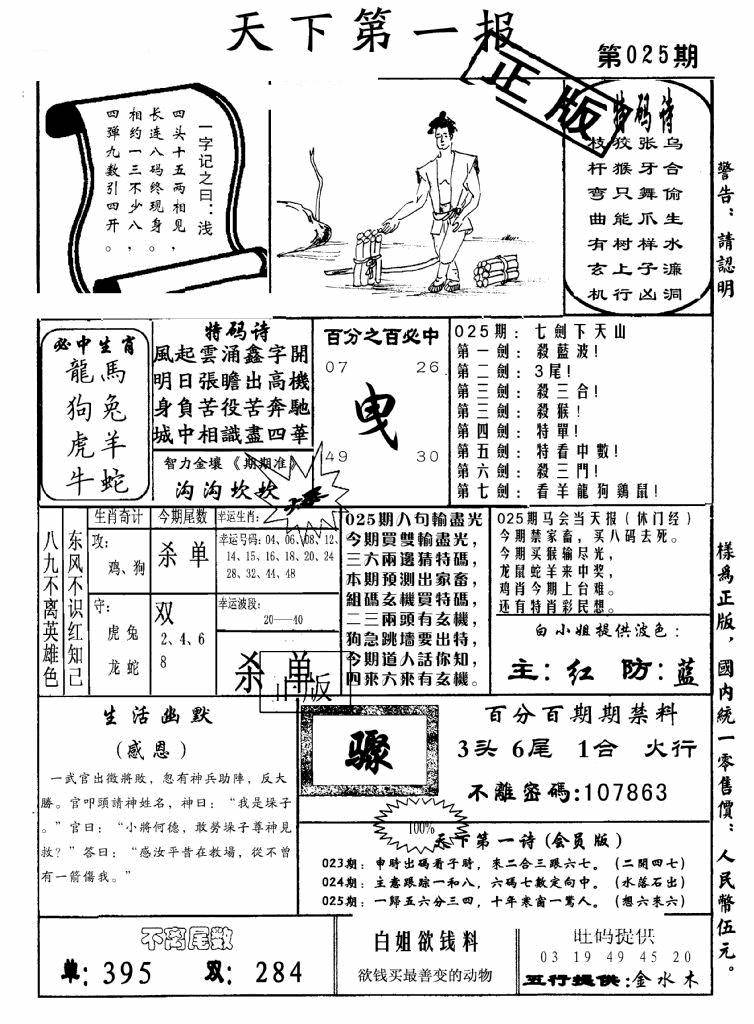 天下第一报
第025期
正版
一字记之曰：浅
四头十五两相见，
长连八码终现身。
相约一三不少八，
四弹九数引四开。
特码诗
乌合偷生水濂洞
张牙舞爪样子凶
狡猴只能树上行
枝杆弯曲有玄机
警告：請認明
樣爲正版，國内統一零售價：人民幣伍元。
必中生肖
龍馬
狗兔
虎羊
牛蛇
特码诗
風起雲涌鑫字開
明日張瞻出高機
身負苦役苦奔馳
城中相識盡四華
智力金壤《期期准》
沟沟坎坎
百分之百必中
07 26
曳
49 30
025期：七劍下天山
第一劍：殺藍波！
第二劍：3尾！
第三劍：殺三合！
第三劍：殺猴！
第四劍：特單！
第五劍：特看中數！
第六劍：殺三門！
第七劍：看羊龍狗鷄鼠！
八九不离英雄色
东风不识红知己
生肖奇计
攻：
鸡、狗
守：
虎 兔
龙 蛇
今期尾数
杀单
双
2、4、6
8
幸运生肖：
幸运号码：04、06、08、12、
14、15、16、18、20、24
28、32、44、48
幸运波段：
20——40
杀单
正版
025期八句輸盡光
今期買雙輸盡光，
三六兩邊猜特碼，
本期預測出家畜，
組碼玄機買特碼，
二三兩頭有玄機。
狗急跳墙要出特，
今期道人話你知，
四來六來有玄機。
025期马会当天报（休门经）
今期禁家畜，买八码去死。
今期买猴输尽光，
龙鼠蛇羊来中奖，
鸡肖今期上台难。
还有特肖彩民想。
白小姐提供波色：
主：红 防：蓝
生活幽默
（感恩）
一武官出微將敗，忽有神兵助陣，反大
勝。官叩頭請神姓名，神曰：“我是垛子
。”官曰：“小將何德，敢勞垛子尊神見
救？”答曰：“感汝平昔在教場，從不曾
有一箭傷我。”
骤
百分百期期禁料
3头 6尾 1合 火行
不離密碼:107863
100%
天下第一诗(会员版)
023期：申時出碼看子時，來二合三跟六七。（二開四七）
024期：主意跟踪一和八，六码七數定向中。（水落石出）
025期：一歸五六分三四，十年寒窗一驚人。（想六來六）
不离尾数
单: 395 双: 284
白姐欲钱料
欲钱买最善变的动物
旺码提供
03 19 49 45 20
五行提供:金水木